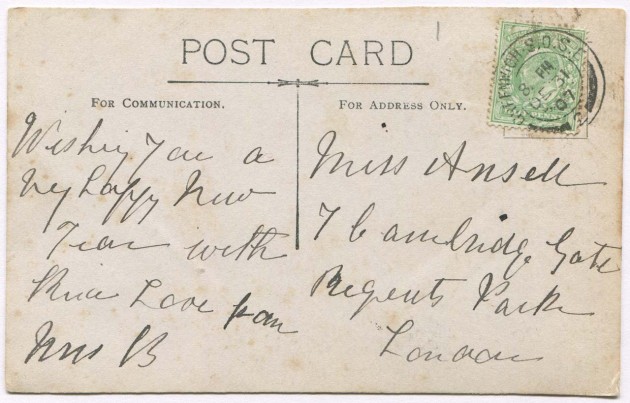 1
POST CARD
FOR COMMUNICATION.
FOR ADDRESS ONLY.
GREENWICH.S.O.S.E
8 PM
DE 31
07
Wishing You a
Very Happy New
Year with
Love from
Mrs B
Miss Ansell
7 Cambridge Gate
Regents Park
London